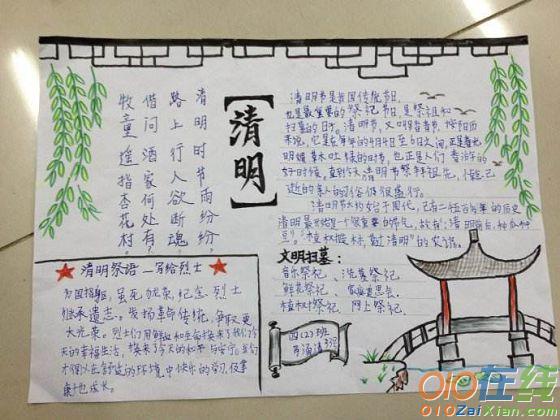 清明时节雨纷纷。
路上行人欲断魂
借问酒家何处有
牧童遥指杏花村。
【清明】
清明节是我国传统节日,
也是最重要的祭祀节日,是祭祖和
扫墓的日子。清明节,又叫踏青节,按阳历
来说,它是在每年的4月4日至6日之间,正是春光
明媚草木吐绿的时节,也正是人们春游的
好时候,直到今天,清明节祭拜祖先,
逝的亲人的习俗仍很盛行。
清明节大约始于周代,已有二千五百多年的历史
清明最开始是一个很重要的节气,故有:清明前后,种瓜种
豆。“植树
清明”的农谚。
文明扫墓:
音乐祭祀、洗墓祭祀
鲜花祭祀、家庭追思会
植树祭祀、网上祭祀
四(2)班
★清明祭语—写给烈士★
为国捐躯,虽死犹荣,纪念烈士
继承遗志。发扬革命传统,争取更
大光荣。烈士们用鲜血和生命换来了我们今
天的幸福生活,换来了今天的和平与安宁。我们
才得以在舒适的环境中快乐的学习,健
康地成长。
010在线
010ZaiXian.com